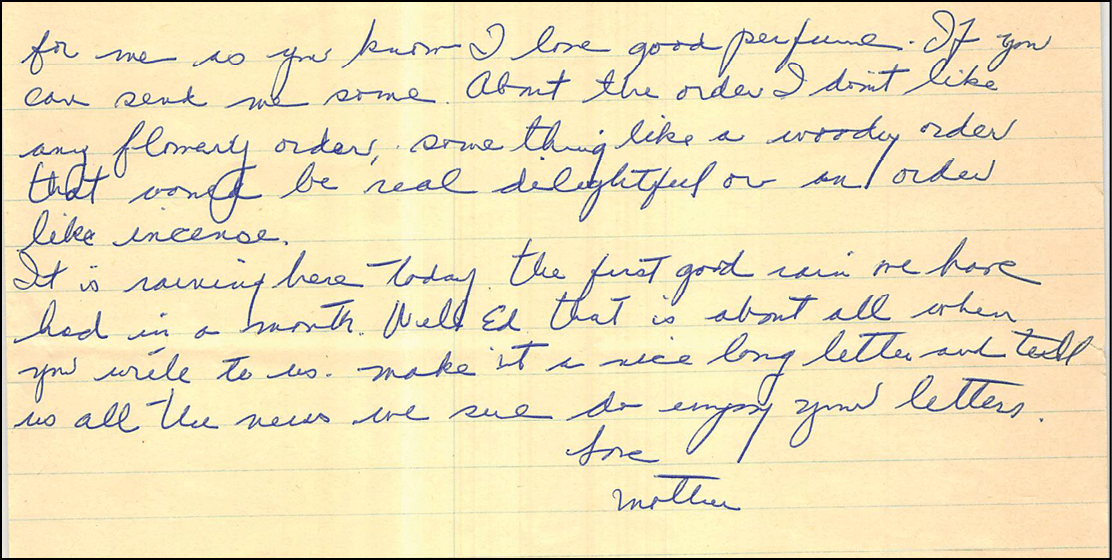 for me as you know I love good perfume. If you
can send me some. About the order I don't like
any flowerly order, some thing like a woody order
that would be real delightful or an order
like incense.
It is raining here today. the first good rain we have
had in a month. Well Ed that is about all when
you write to us. make it a nice long letter and tell
us all the news we sure do enjoy your letters.
Love
Mother